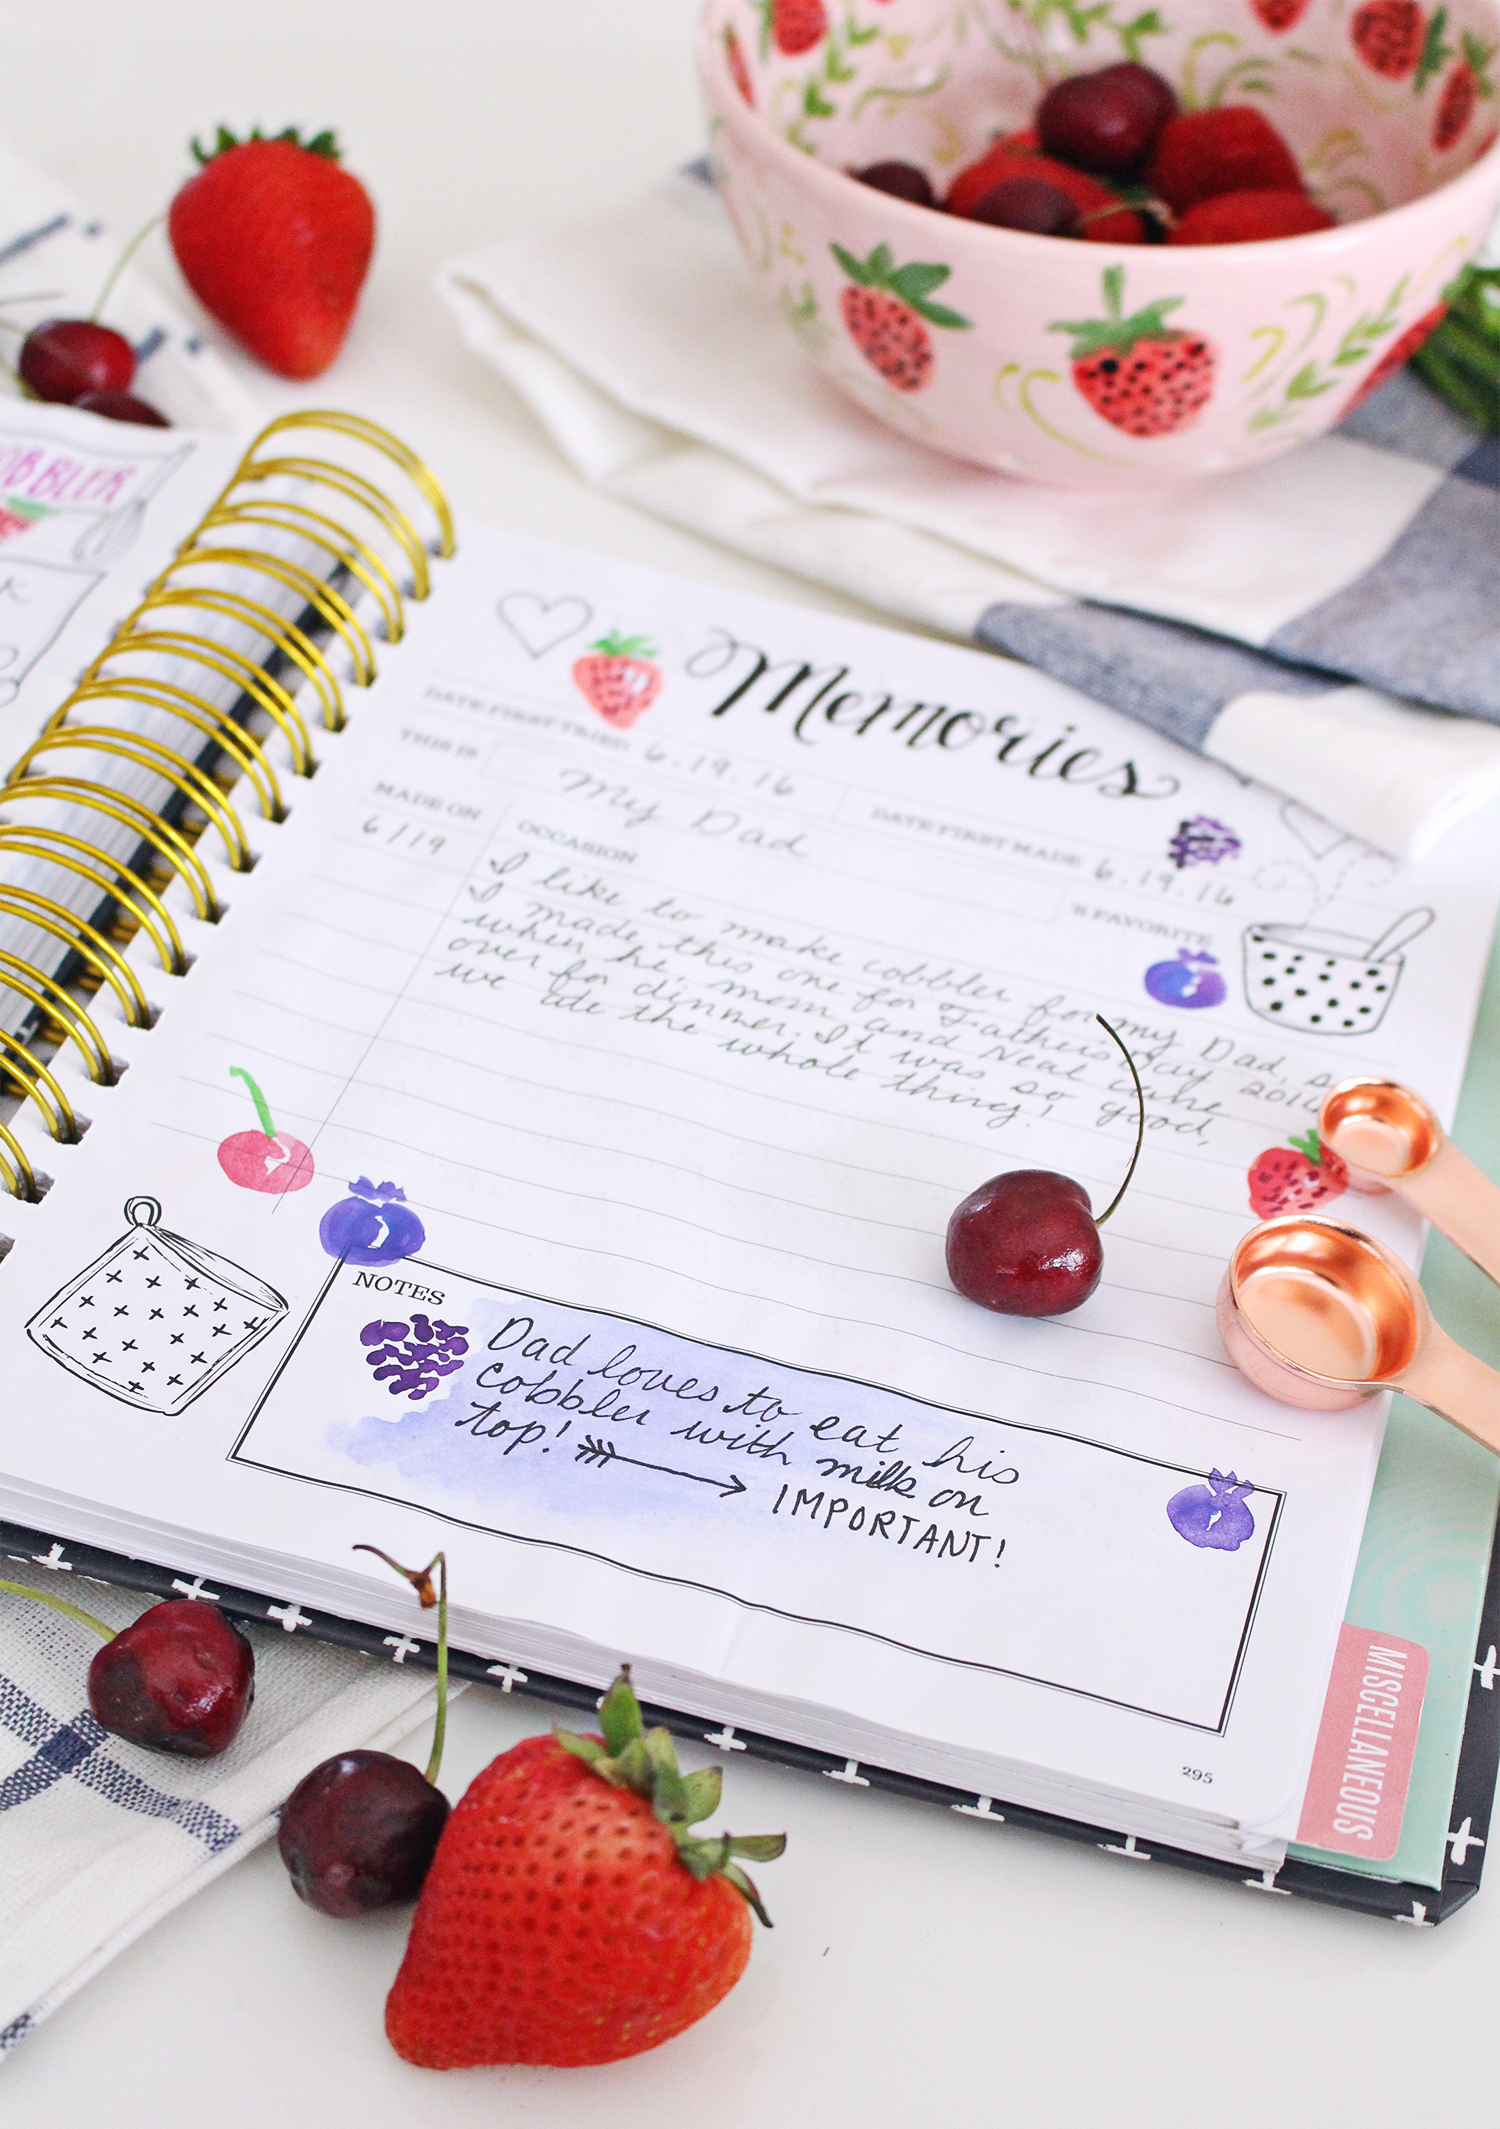 OBBLER
K
Memories
DATE FIRST TRIED 6.19.16
DATE FIRST MADE 6.19.16
THIS IS My Dad 'S FAVORITE
MADE ON
OCCASION
6/19
I like to make cobbler for my Dad, so
I made this one for Father's Day 2016
when he, mom and Neal came
over for dinner. It was so good,
we ate the whole thing!
NOTES
Dad loves to eat his
cobbler with milk on
top! IMPORTANT!
295
MISCELLANEOUS